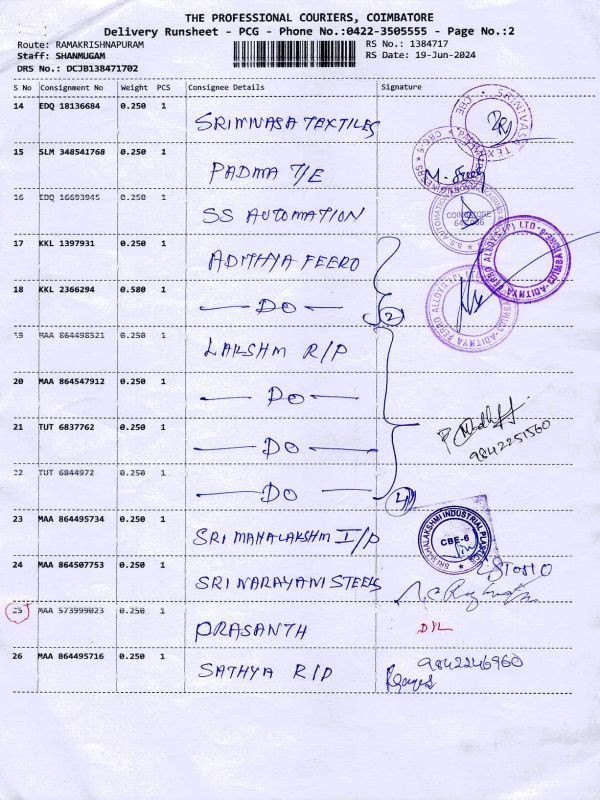 THE PROFESSIONAL COURIERS, COIMBATORE
Delivery Runsheet - PCG - Phone No.:0422-3505555 - Page No.:2
Route: RAMAKRISHNAPURAM RS No.: 1384717
Staff: SHANMUGAM RS Date: 19-Jun-2024
DRS No.: DCJB138471702
S No Consignment No Weight PCS Consignee Details Signature
14 EDQ 18136684 0.250 1 SRINIVASA TEXTILES
15 SLM 348541768 0.250 1 PADMA T/E
16 EDQ 16693945 0.250 1 SS AUTOMATION COIMBATORE
17 KKL 1397931 0.250 1 ADITHYA FEERO
18 KKL 2366294 0.580 1 DO 2
19 MAA 864498521 0.250 1 LAKSHM R/P
20 MAA 864547912 0.250 1 DO
21 TUT 6837762 0.250 1 DO 9842251560
22 TUT 6844972 0.250 1 DO 4
23 MAA 864495734 0.250 1 SRI MAHALAKSHM I/P SRI MAHALAKSHMI INDUSTRIAL PLASTICS CBE-6
24 MAA 864507753 0.250 1 SRI NARAYANI STEELS
25 MAA 573999023 0.250 1 PRASANTH
26 MAA 864495716 0.250 1 SATHYA R/P 9842246960